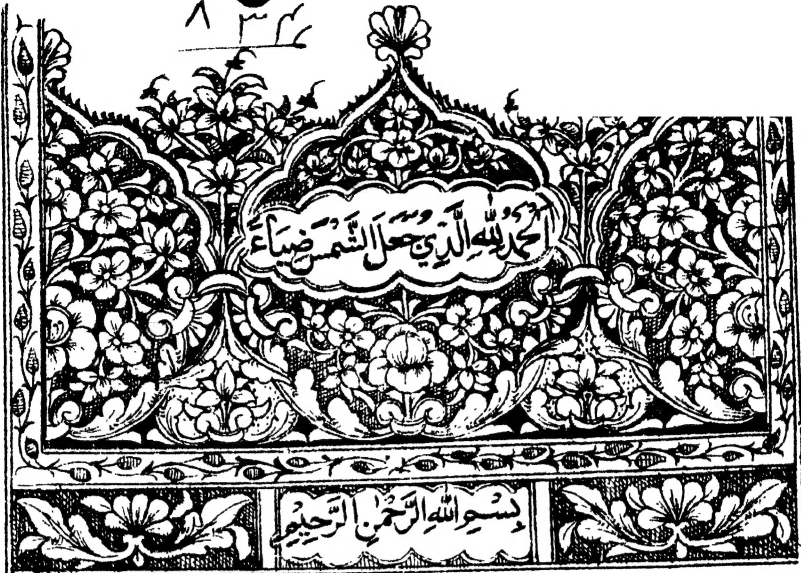 اَلْحَمْدُ لِلّٰهِ الَّذِي جَعَلَ الشَّمْسَ ضِيَاءً
بِسْمِ اللهِ الرَّحْمٰنِ الرَّحِيْمِ